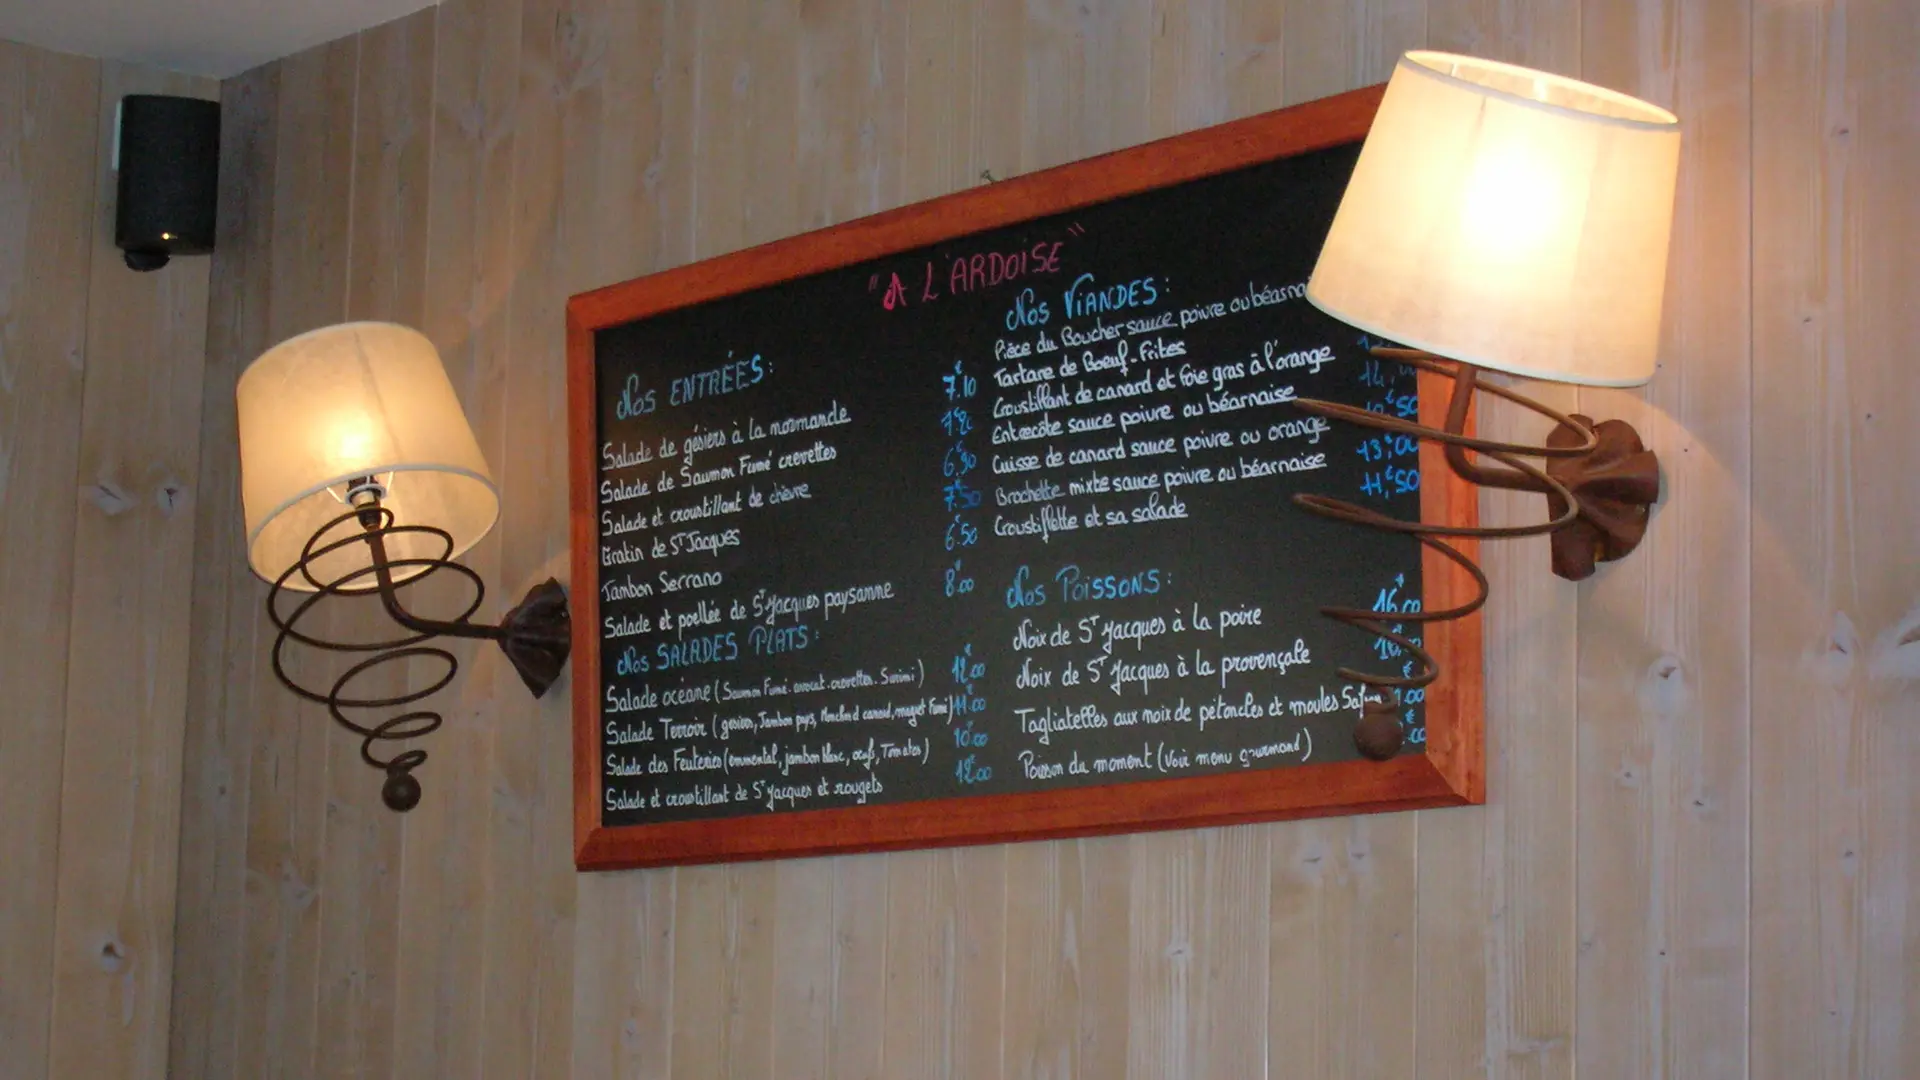 "A L'ARDOISE"
Nos ENTRÉES:
Salade de gésiers à la normande 7.10
Salade de Saumon Fumé crevettes
Salade et croustillant de chèvre 6.90
Gratin de ST Jacques 7.50
Jambon Serrano 6.50
Salade et poellée de ST Jacques paysanne 8.00
Nos SALADES PLATS:
Salade océane (Saumon Fumé. avocat. crevettes. Surimi) 12.00
Salade Terroir (gesiers, Jambon pays, Manchon d canard, magret Fumé) 11.00
Salade des Feuteries (emmental, jambon blanc, oeufs, Tomates) 10.00
Salade et croustillant de ST Jacques et rougets 12.00
Nos VIANDES:
Pièce du Boucher sauce poivre ou
Tartare de Boeuf - Frites
Croustillant de canard et Foie gras à l'orange
Entrecôte sauce poivre ou béarnaise
Cuisse de canard sauce poivre ou orange
Brochette mixte sauce poivre ou béarnaise 13,00
Croustiflette et sa salade 11,50
Nos POISSONS:
Noix de ST Jacques à la poire 16.00
Noix de ST Jacques à la provençale
Tagliatelles aux noix de pétoncles et moules
Poisson du moment (Voir menu gourmand)